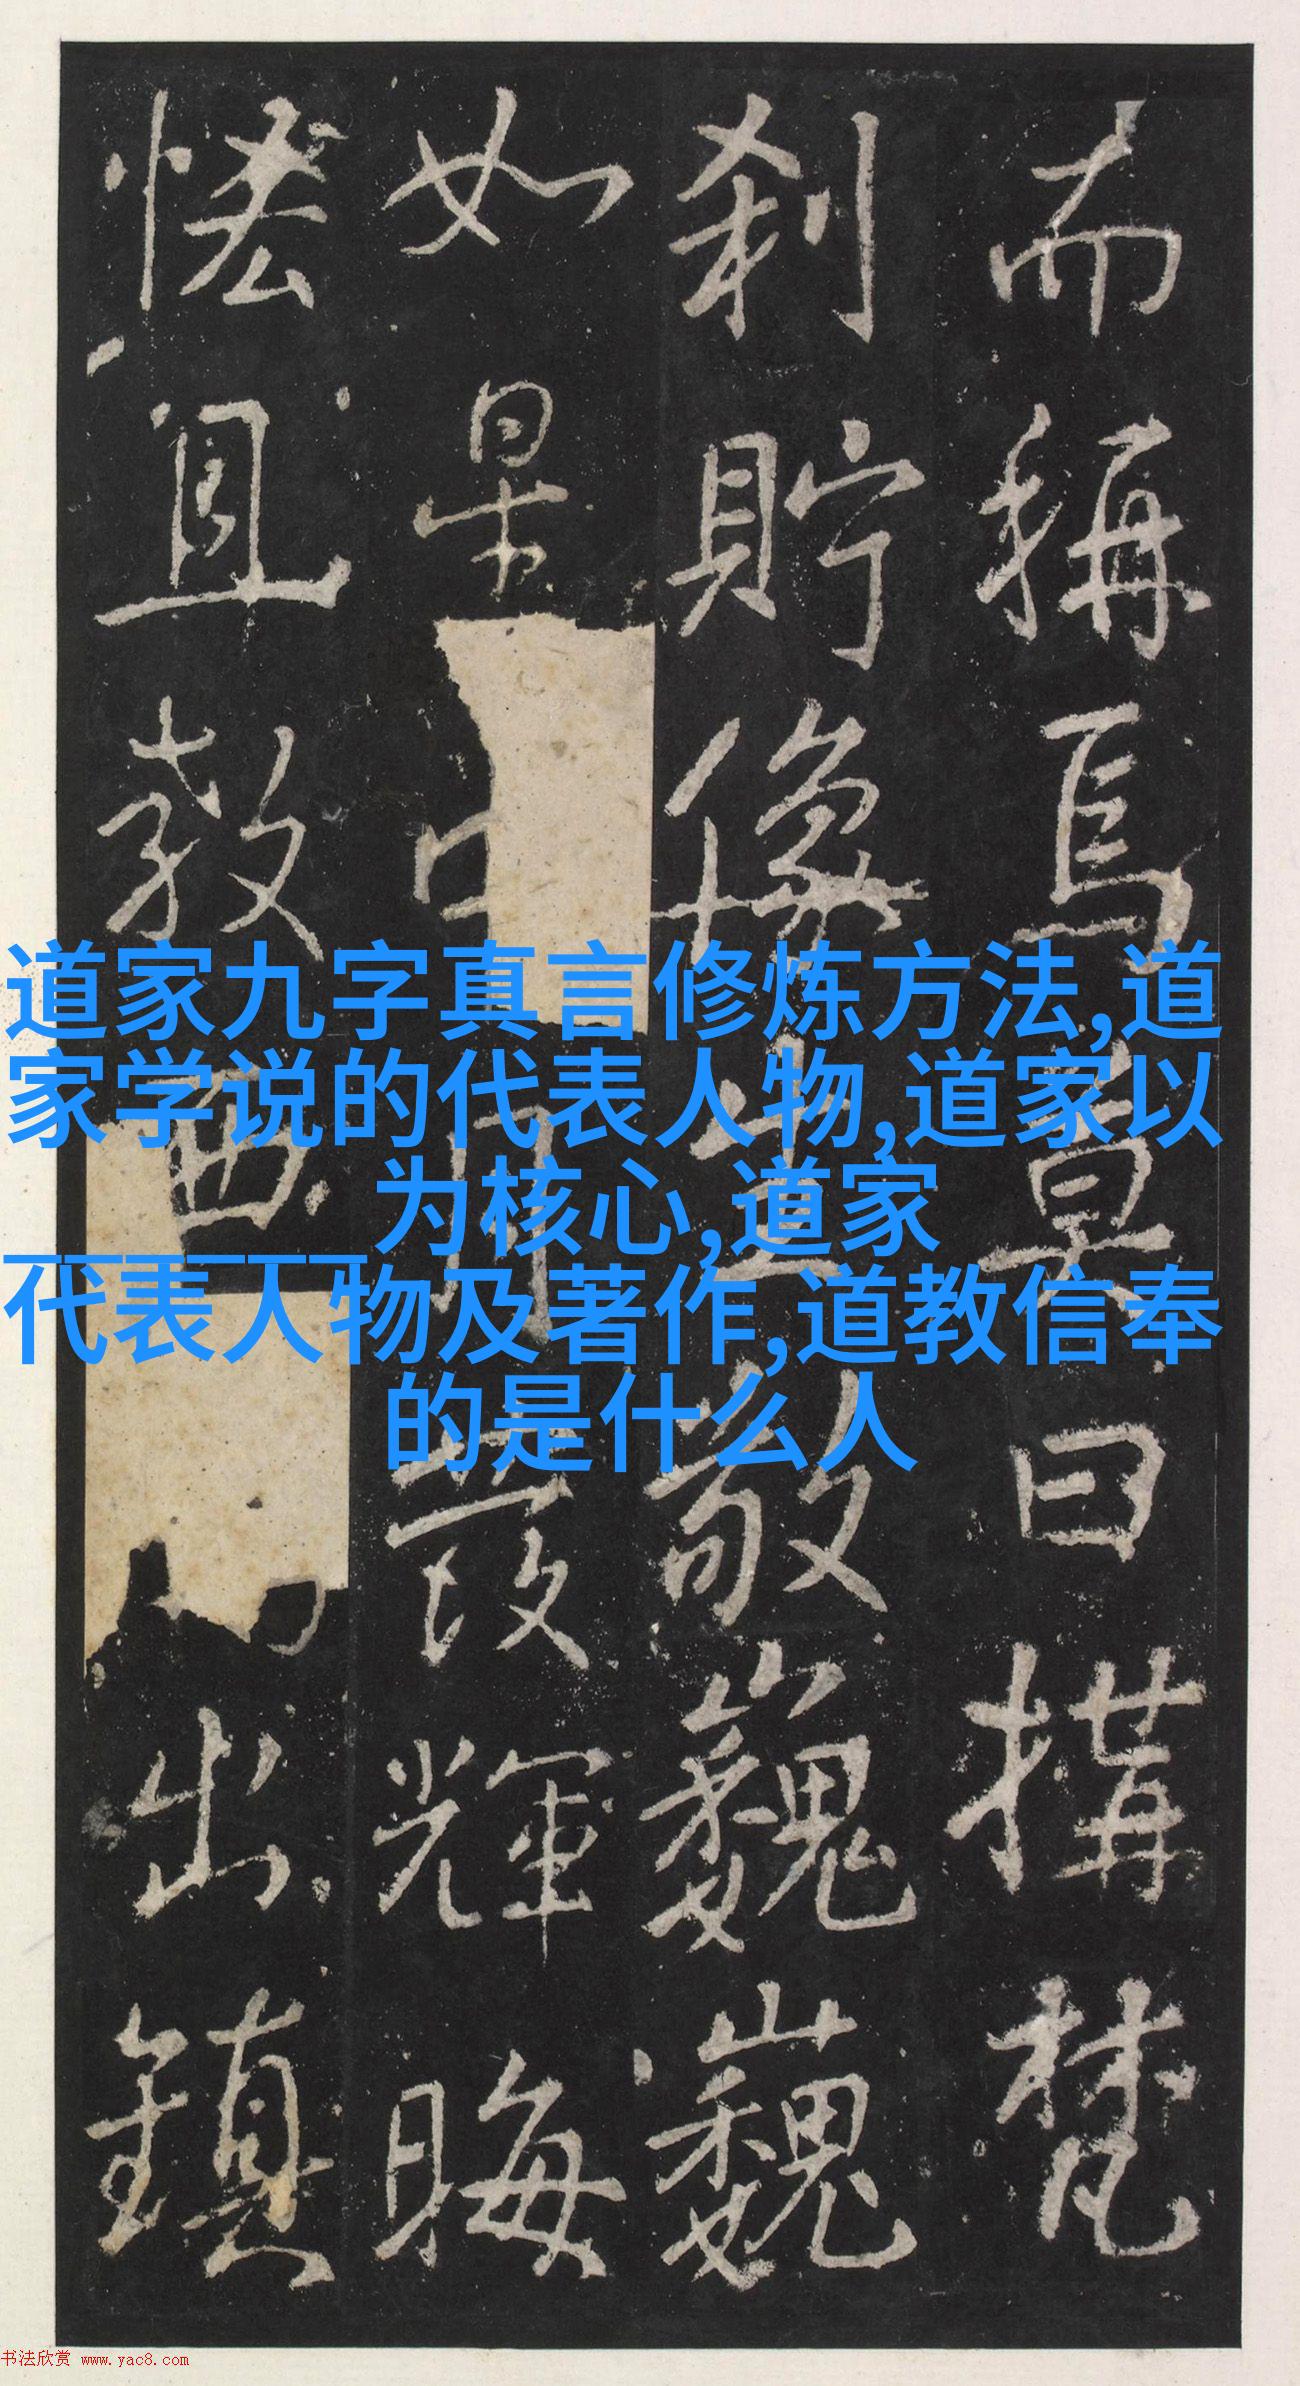 而稱焉曰搆梵
刹貯像敞巍巍
如杲日發輝晦
且教西出鎮
道家九字真言修炼方法,道
家学说的代表人物,道家以
_______为核心,道家
代表人物及著作,道教信奉
的是什么人
书法欣赏 www.yac8.com